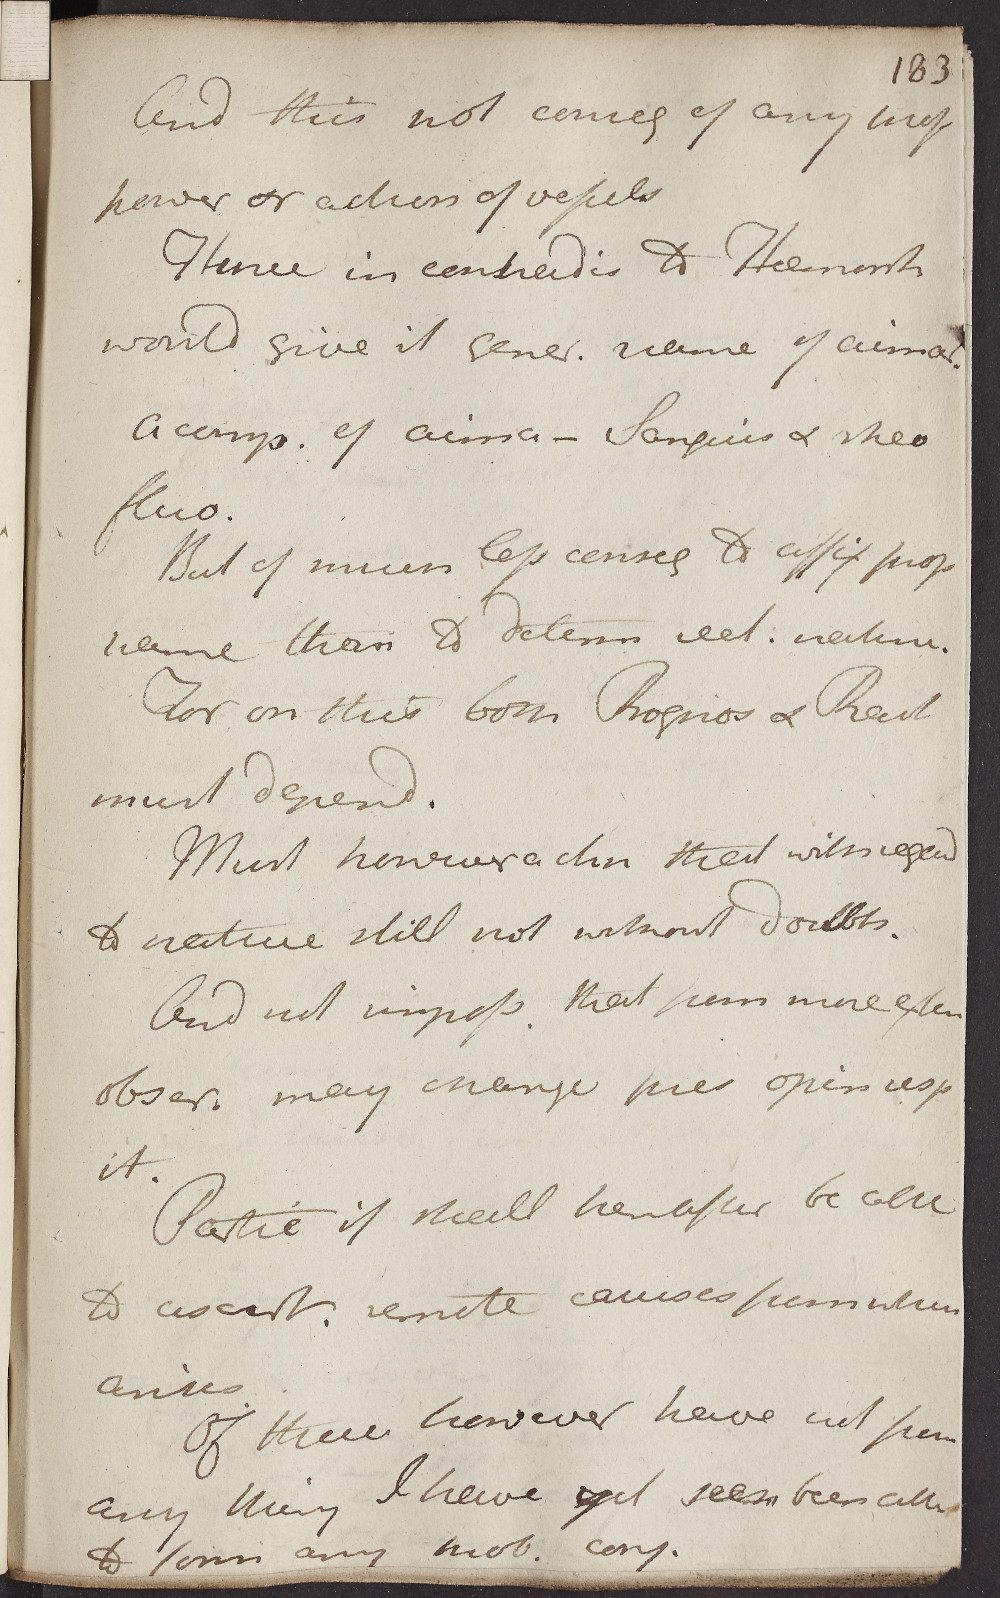 183
And this not conseq of any prop
power or action of vessels
Hence in contradis to Hæmorrh
would give it gener. name of aimor.
a comp. of aima - Sanguis & rheo
fluo.
But of much less conseq to affix prop
name than to determ real. nature.
For on this both Prognos & Pract
must depend.
Must however ackn that with regard
to nature still not without doubts.
And not imposs. that from more exten
obser. may change pres opin resp
it.
Partic if shall hereafter be able
to ascert. remote causes from which
arises
Of these however have not from
any thing I have yet seen been able
to form any prob. conj.